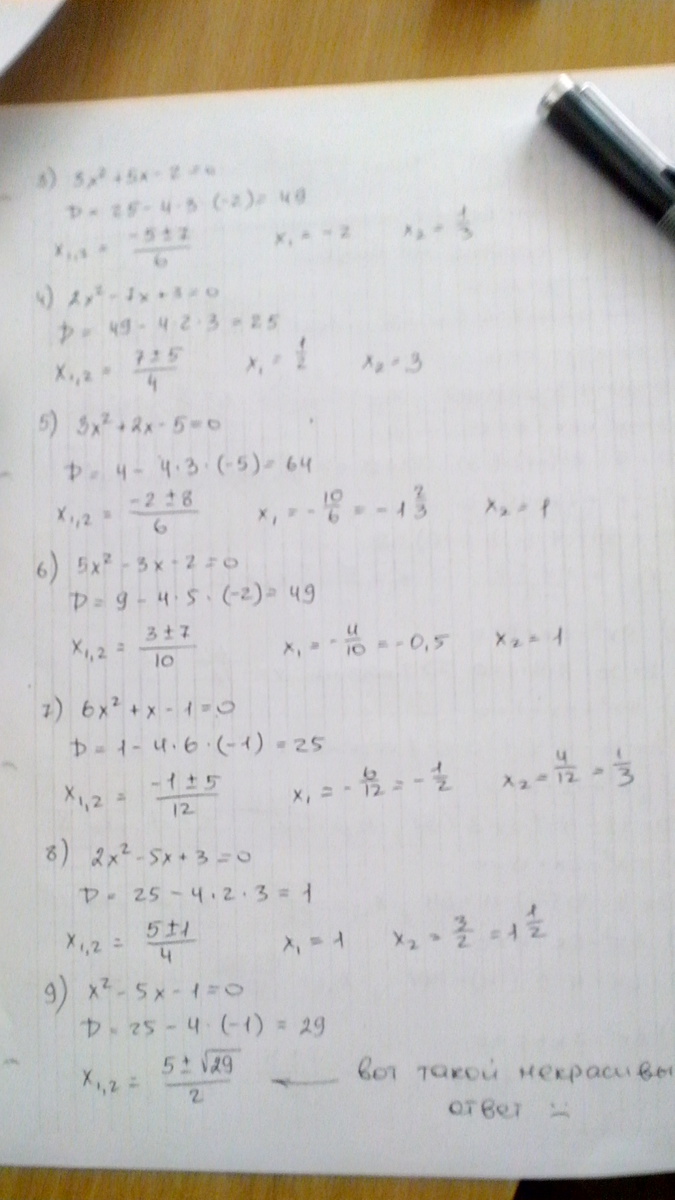 3) 3x² + 5x - 2 = 0
D = 25 - 4·3·(-2) = 49
x₁,₂ = (-5 ± 7)/6 x₁ = -2 x₂ = 1/3
4) 2x² - 7x + 3 = 0
D = 49 - 4·2·3 = 25
x₁,₂ = (7 ± 5)/4 x₁ = 1/2 x₂ = 3
5) 3x² + 2x - 5 = 0
D = 4 - 4·3·(-5) = 64
x₁,₂ = (-2 ± 8)/6 x₁ = -10/6 = -1 2/3 x₂ = 1
6) 5x² - 3x - 2 = 0
D = 9 - 4·5·(-2) = 49
x₁,₂ = (3 ± 7)/10 x₁ = -4/10 = -0,5 x₂ = 1
7) 6x² + x - 1 = 0
D = 1 - 4·6·(-1) = 25
x₁,₂ = (-1 ± 5)/12 x₁ = -6/12 = -1/2 x₂ = 4/12 = 1/3
8) 2x² - 5x + 3 = 0
D = 25 - 4·2·3 = 1
x₁,₂ = (5 ± 1)/4 x₁ = 1 x₂ = 3/2 = 1 1/2
9) x² - 5x - 1 = 0
D = 25 - 4·(-1) = 29
x₁,₂ = (5 ± √29)/2 ← вот такой некрасивы
ответ :-(